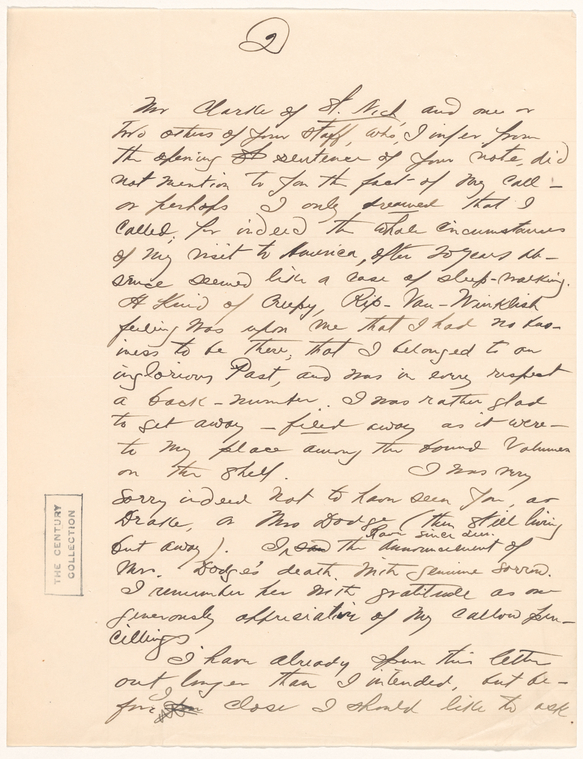 2
Mr Clarke of St. Nick, and one or
two others of your staff, who, I infer from
the opening of sentence of your note, did
not mention to you the fact of my call –
or perhaps I only dreamed that I
called; for indeed the whole circumstances
of my visit to America, after 20 years ab–
sence seemed like a case of sleep-walking.
A kind of creepy, Rip-Van-Winklish
feeling was upon me that I had no bus–
iness to be there, that I belonged to an
inglorious Past, and was in every respect
a back-number. I was rather glad
to get away – filed away as it were –
to my place among the bound Volumes
on the shelf. I was very
sorry indeed not to have seen you, or
Drake, or Mrs Dodge (then still living
but away). I saw the announcement of
have since seen
Mrs. Dodge's death with genuine sorrow.
I remember her with gratitude as one
generously appreciative of my callow pen–
cillings
I have already spun this letter
out longer than I intended, but be–
fore I close I should like to ask
THE CENTURY
COLLECTION